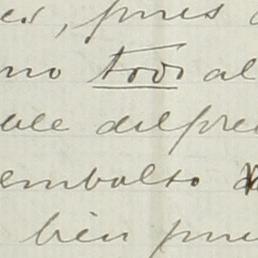 , pues
no todo al
ale del pre
embolso
bien pue